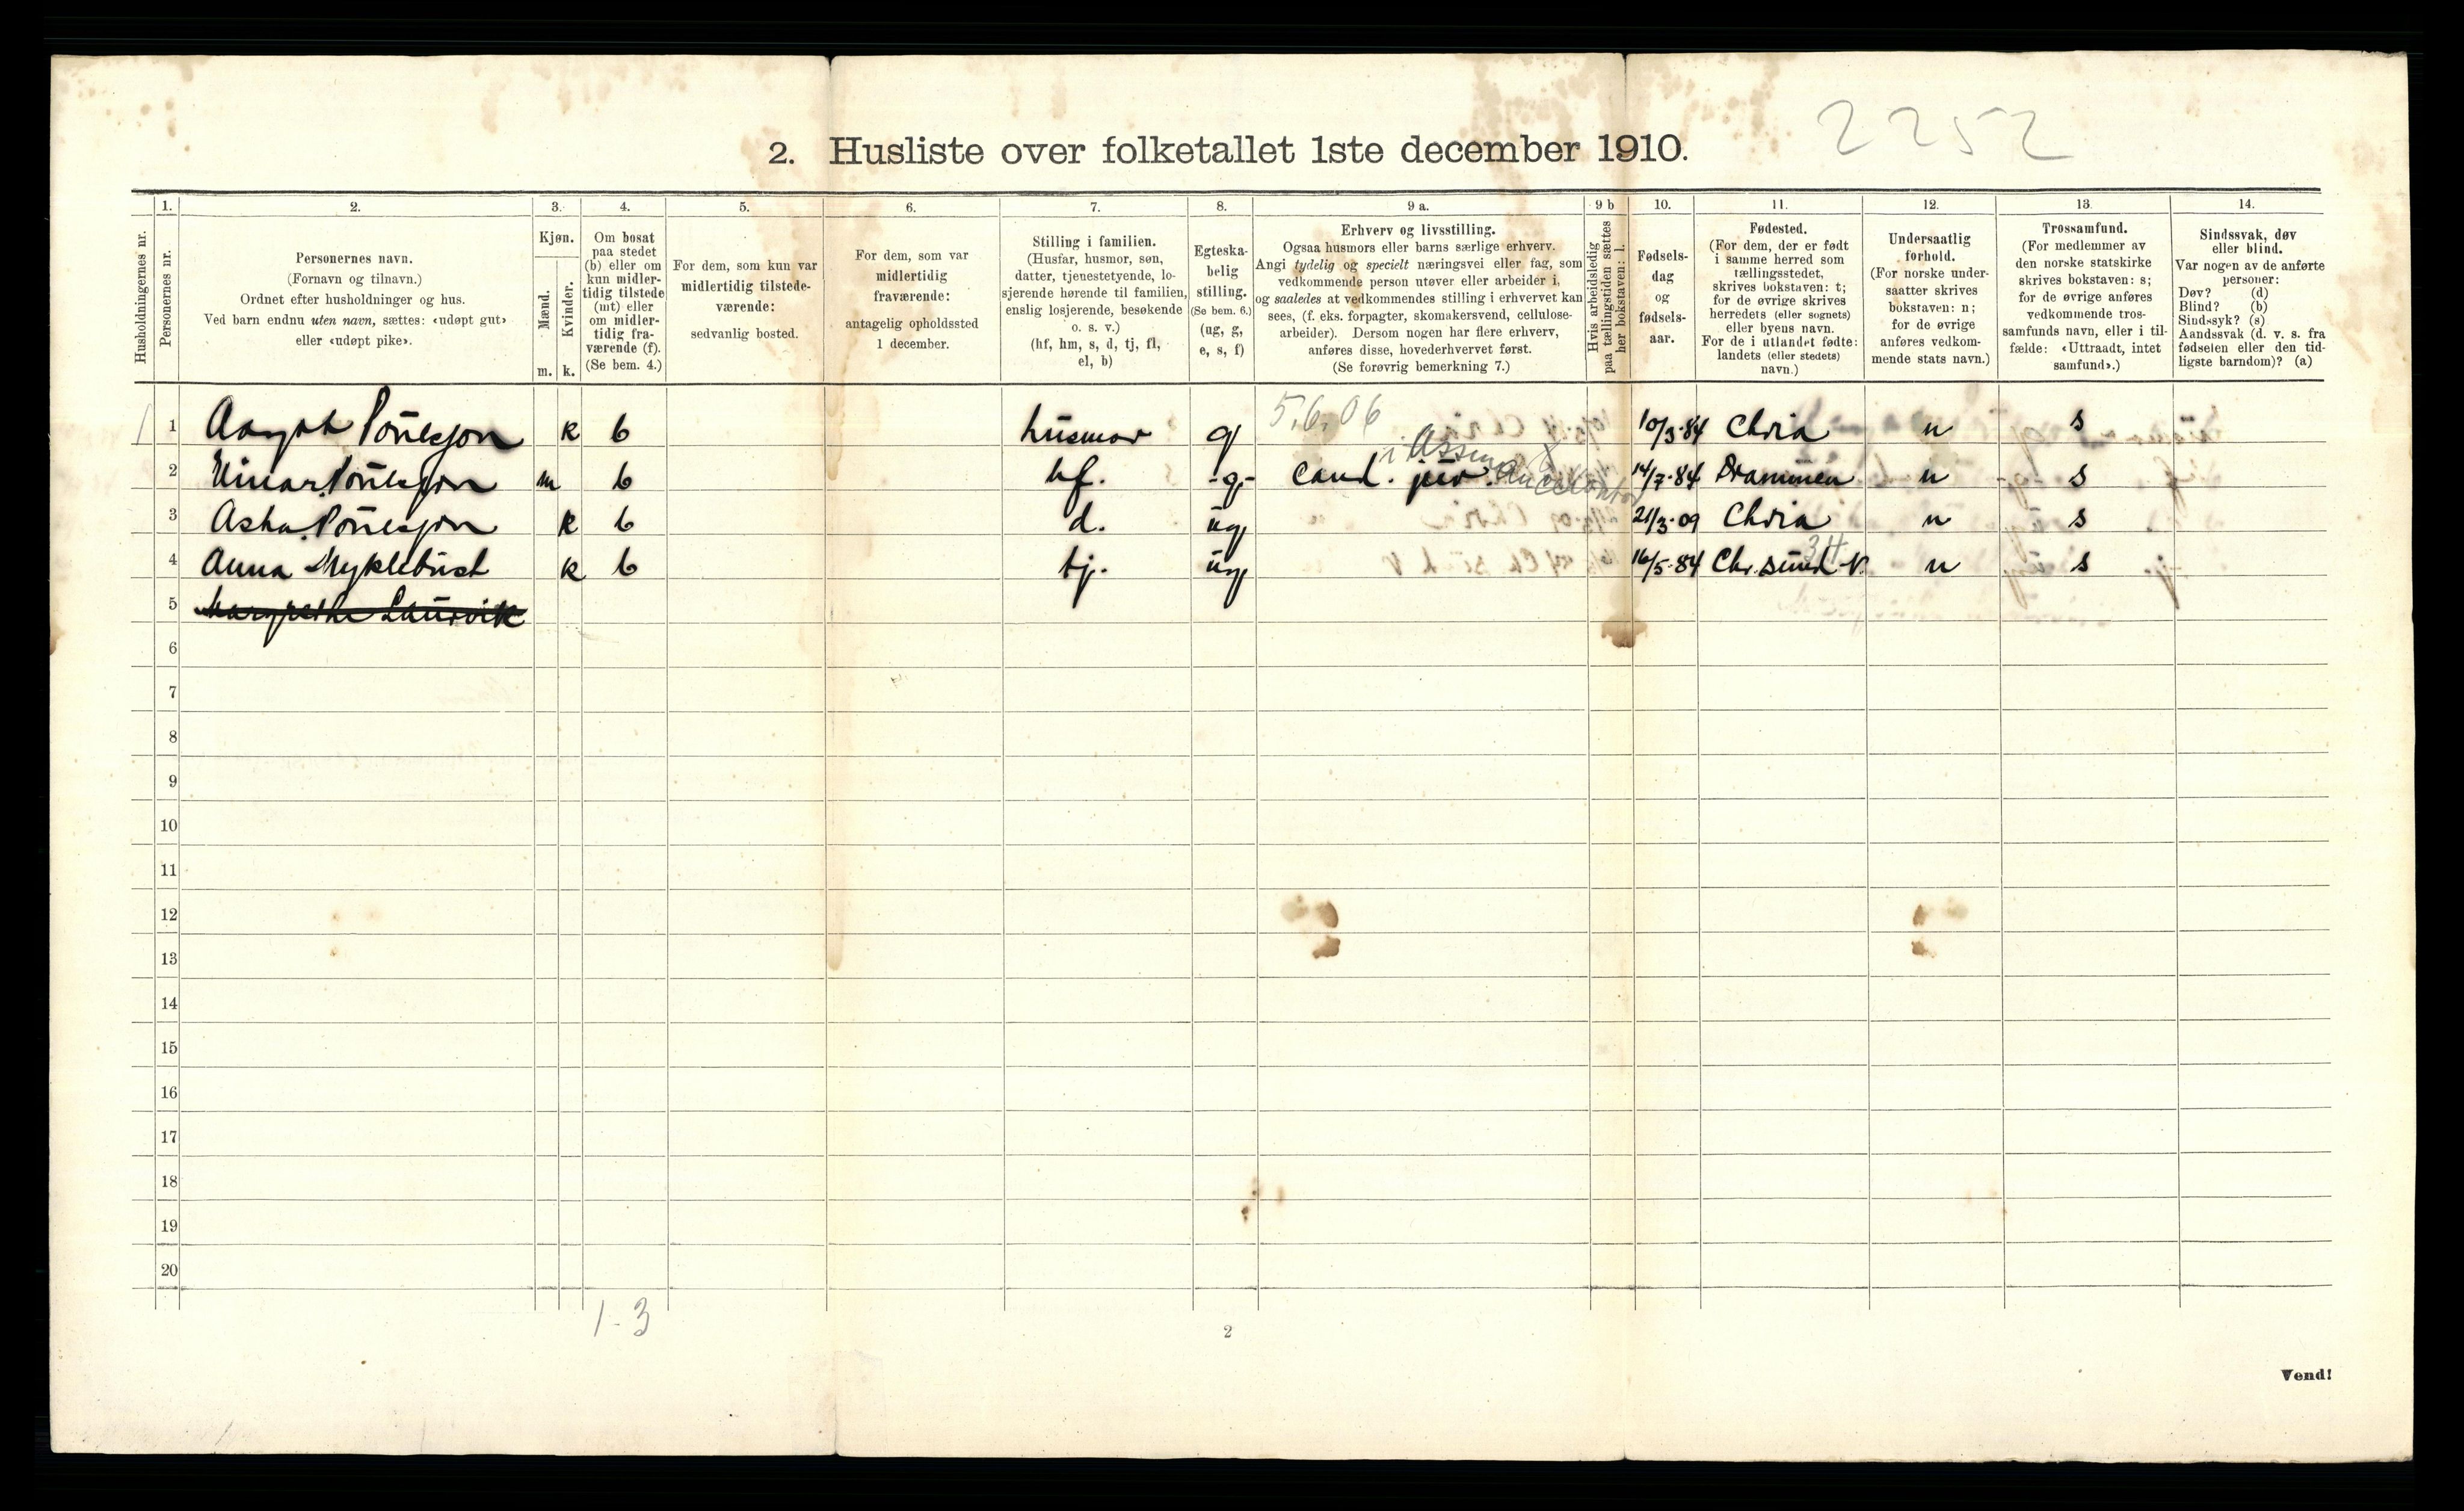 2252
2. Husliste over folketallet 1ste december 1910.
Husholdningernes nr.
1.
Personernes nr.
2.
Personernes navn.
(Fornavn og tilnavn.)
Ordnet efter husholdninger og hus.
Ved barn endnu uten navn, sættes: «udøpt gut»
eller «udøpt pike».
3.
Kjøn.
Mænd.
Kvinder.
m. k.
4.
Om bosat
paa stedet
(b) eller om
kun midler-
tidig tilstede
(mt) eller
om midler-
tidig fra-
værende (f).
(Se bem. 4.)
5.
For dem, som kun var
midlertidig tilstede-
værende:
sedvanlig bosted.
6.
For dem, som var
midlertidig
fraværende:
antagelig opholdssted
1 december.
7.
Stilling i familien.
(Husfar, husmor, søn,
datter, tjenestetyende, lo-
sjerende hørende til familien,
enslig losjerende, besøkende
o. s. v.)
(hf, hm, s, d, tj, fl,
el, b)
8.
Egteska-
belig
stilling.
(Se bem. 6.)
(ug, g,
e, s, f)
9 a.
Erhverv og livsstilling.
Ogsaa husmors eller barns særlige erhverv.
Angi tydelig og specielt næringsvei eller fag, som
vedkommende person utøver eller arbeider i,
og saaledes at vedkommendes stilling i erhvervet kan
sees, (f. eks. forpagter, skomakersvend, cellulose-
arbeider). Dersom nogen har flere erhverv,
anføres disse, hovederhvervet først.
(Se forøvrig bemerkning 7.)
9 b
Hvis arbeidsledig
paa tællingstiden sættes
her bokstaven: l.
10.
Fødsels-
dag
og
fødsels-
aar.
11.
Fødested.
(For dem, der er født
i samme herred som
tællingsstedet,
skrives bokstaven: t;
for de øvrige skrives
herredets (eller sognets)
eller byens navn.
For de i utlandet fødte:
landets (eller stedets)
navn.)
12.
Undersaatlig
forhold.
(For norske under-
saatter skrives
bokstaven: n;
for de øvrige
anføres vedkom-
mende stats navn.)
13.
Trossamfund.
(For medlemmer av
den norske statskirke
skrives bokstaven: s;
for de øvrige anføres
vedkommende tros-
samfunds navn, eller i til-
fælde: «Uttraadt, intet
samfund».)
14.
Sindssvak, døv
eller blind.
Var nogen av de anførte
personer:
Døv? (d)
Blind? (b)
Sindssyk? (s)
Aandssvak (d. v. s. fra
fødselen eller den tid-
ligste barndom)? (a)
5.6.06
1 1 k b husmor g 10/3·84 Chria n s
i Assurancekontor
2 Einar m b hf. -g- cand. jur. 14/7·84 Drammen n s
3 k b d. ug 21/3·09 Chria n s
34
4 Anna Myklebust k b tj. ug 16/5·84 Chr.sund N. n s
5 Margrethe Laurvik
6
7
8
9
10
11
12
13
14
15
16
17
18
19
20
1-3
2
Vend!